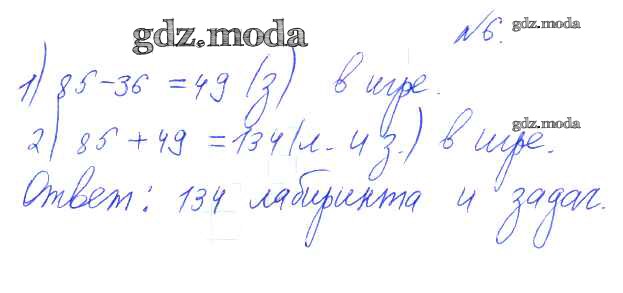 gdz.moda
№6. gdz.moda
1) 85-36 =49 (з) в игре.
gdz.moda
2) 85+49 =134(л. и з.) в игре.
Ответ: 134 лабиринта и задач.